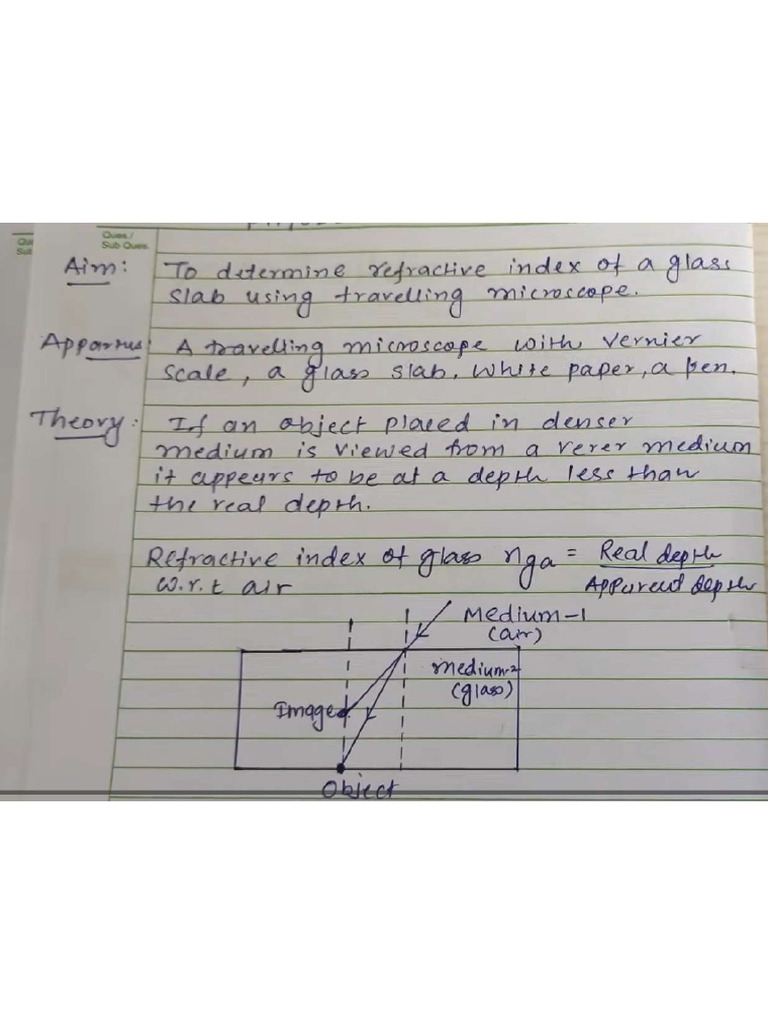 Ques./
Sub Ques.
Aim: To determine refractive index of a glass
slab using travelling microscope.
Apparatus: A travelling microscope with vernier
scale, a glass slab, white paper, a pen.
Theory: If an object placed in denser
medium is viewed from a rerer medium
it appears to be at a depth less than
the real depth.
Refractive index of glass nga = Real depth
w.r.t air Apparent depth
Medium-1
(air)
medium-2
(glass)
Image
Object